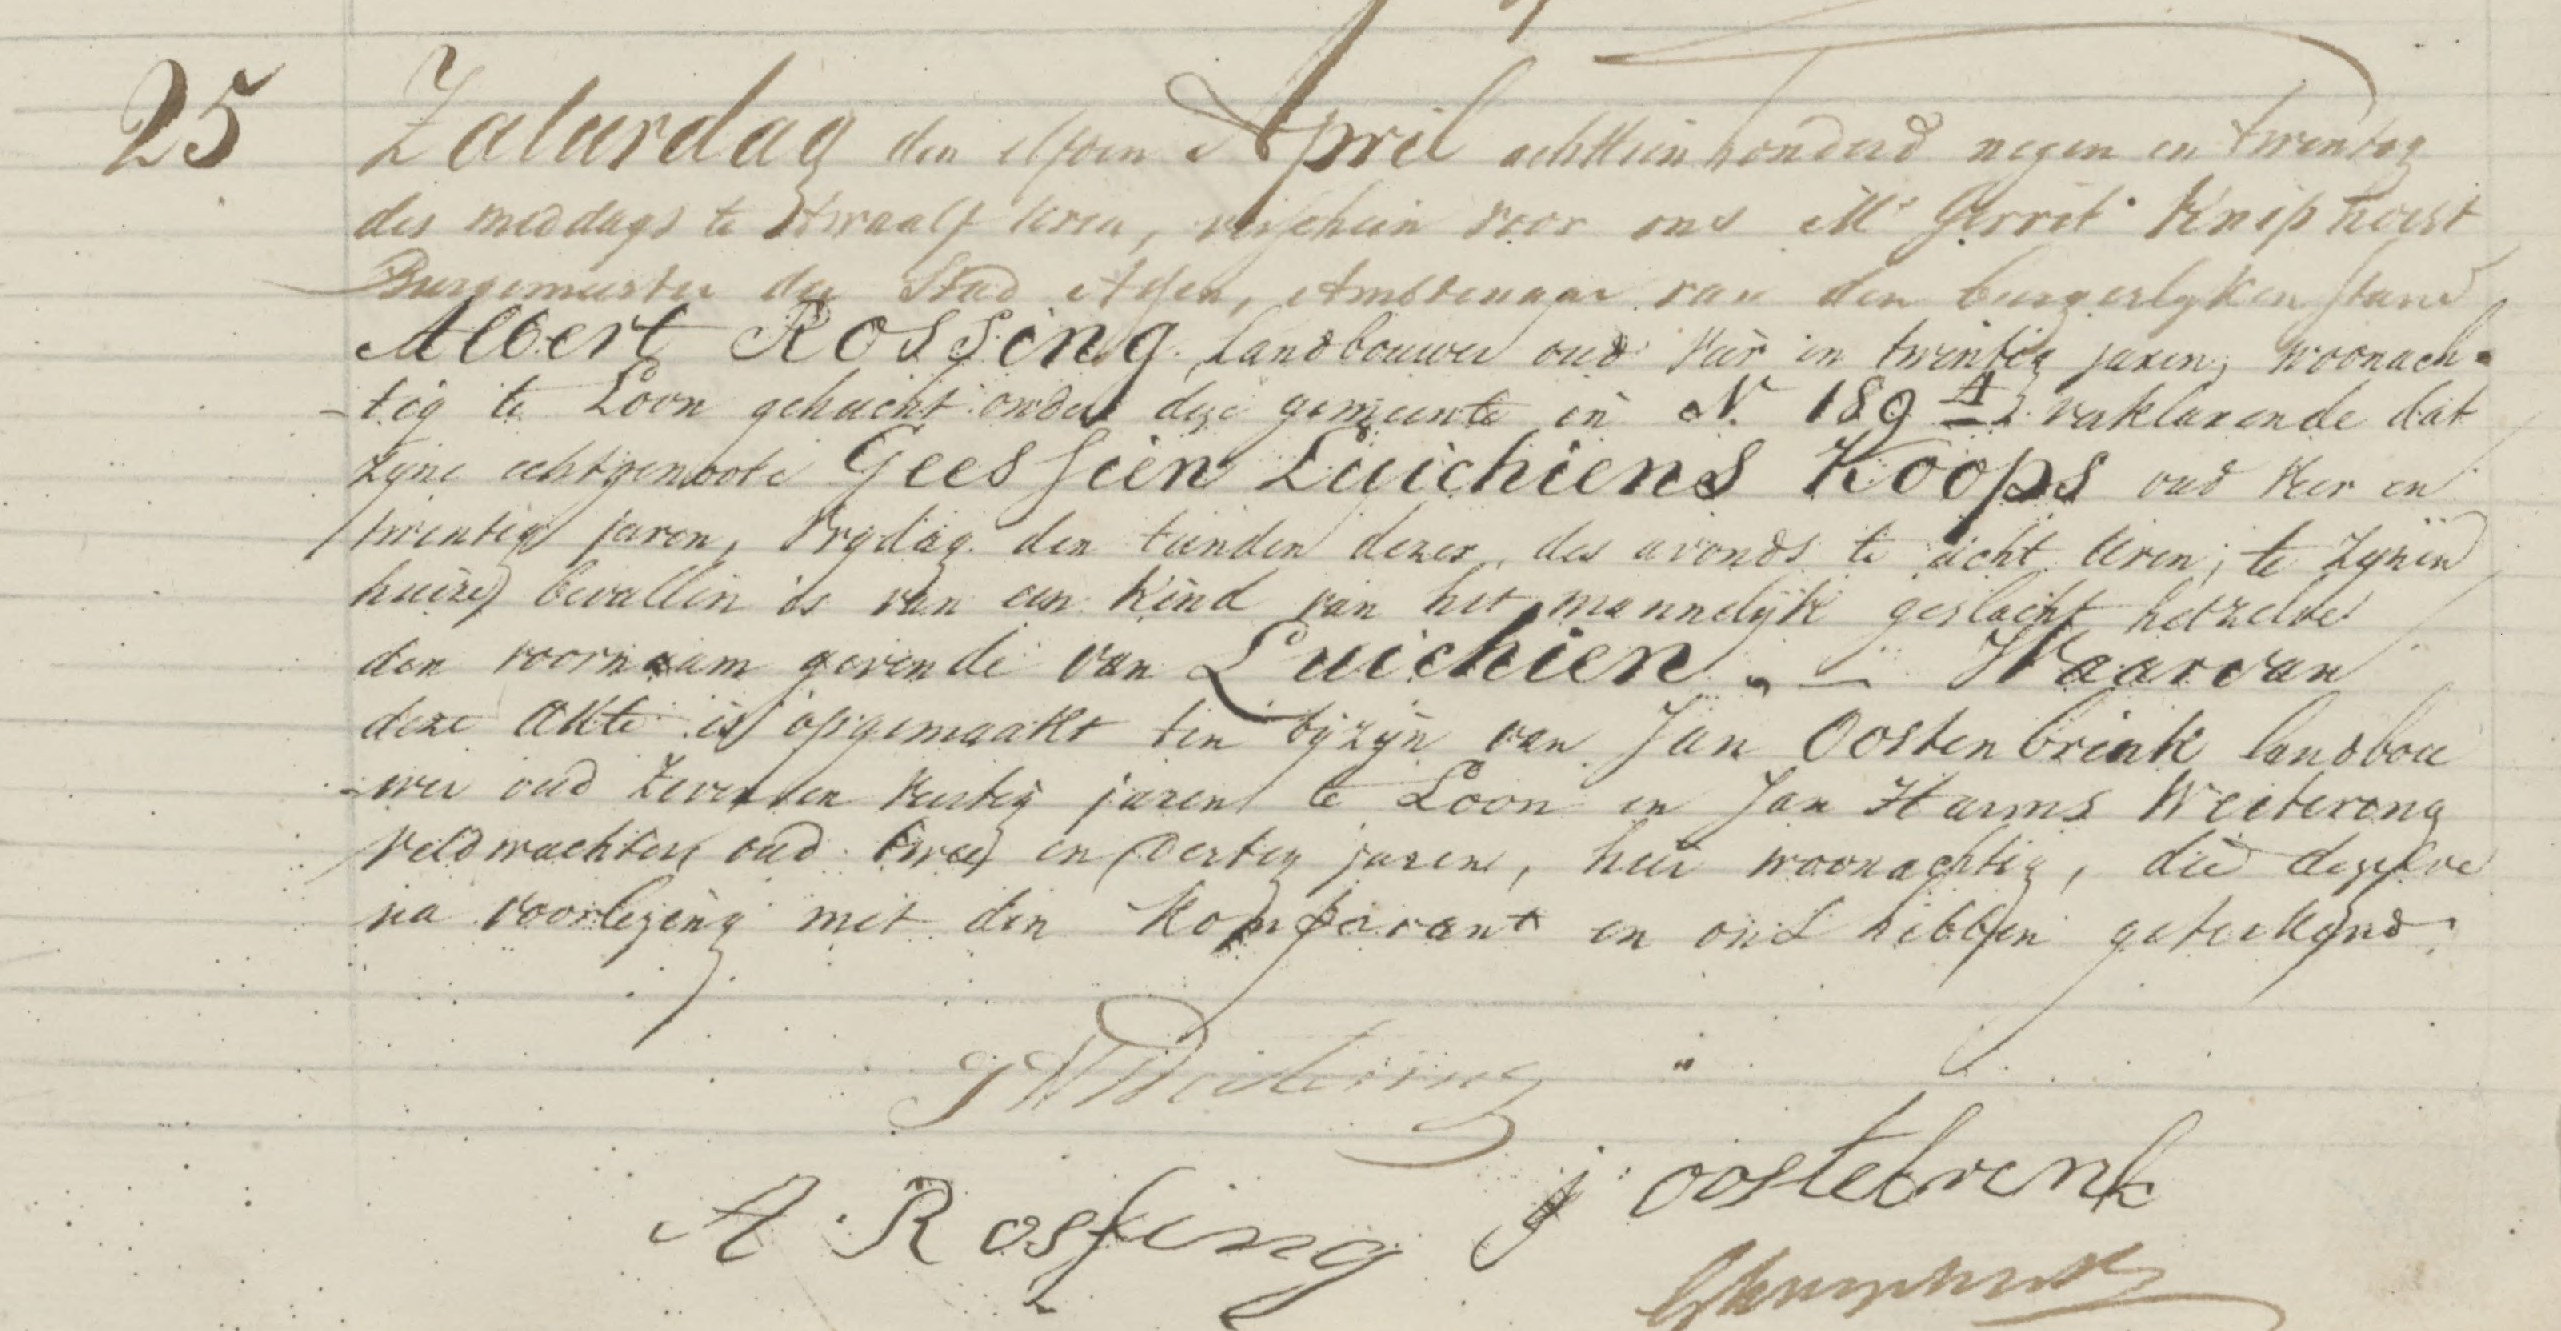 25 Zaturdag den elfden April achttienhonderd negen en twintig
des middags te twaalf uren, verscheen voor ons Mr Gerrit Kniphorst
Burgemeester der Stad Assen, Ambtenaar van den burgerlyken stand
Albert Rossing landbouwer oud vier en twintig jaren, woonach-
-tig te Loon gehucht onder deze gemeente in N. 189 A verklarende dat
zyne echtgenoote Geessien Luichiens Koops oud vier en
twintig jaren, Vrydag den tienden dezer, des avonds te acht uren, te zynen
huize bevallen is van een kind van het mannelijk geslacht hetzelve
den voornaam gevende van Luichien. – Waarvan
deze akte is opgemaakt ten byzyn van Jan Oostenbrink landbou
-wer oud zeven en veertig jaren te Loon en Jan Harms Weitering
veldwachter oud twee en dertig jaren, hier woonachtig, die dezelve
na voorlezing met den Komparant en ons hebben geteekend.
JH Weitering
A Rossing j oostebrink
GKniphorst